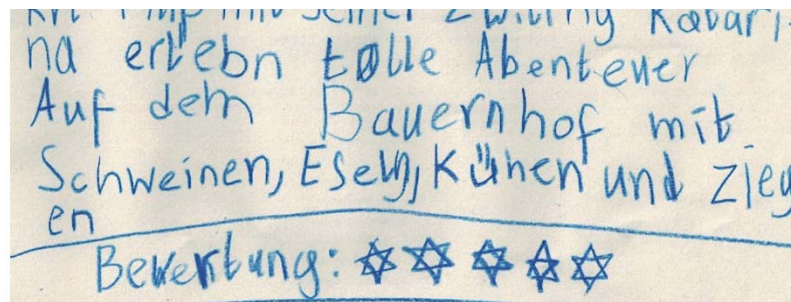 mit seiner Zwilling Katari-
na erlebn tolle Abenteuer
Auf dem Bauernhof mit
Schweinen, Eseln, Kühen und Zieg
en
Bewertung: ✡ ✡ ✡ ✡ ✡